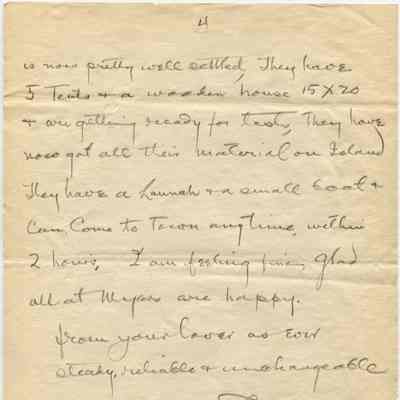 4
is now pretty well settled, They have
5 Tents + a wooden house 15 X 20
+ are getting ready for tests, They have
now got all their material on Island
They have a Launch + a small boat +
Can Come to Town anytime, within
2 hours, I am feeling fine, glad
all at Myers are happy.
from your lover as ever
steady, reliable + unchangeable